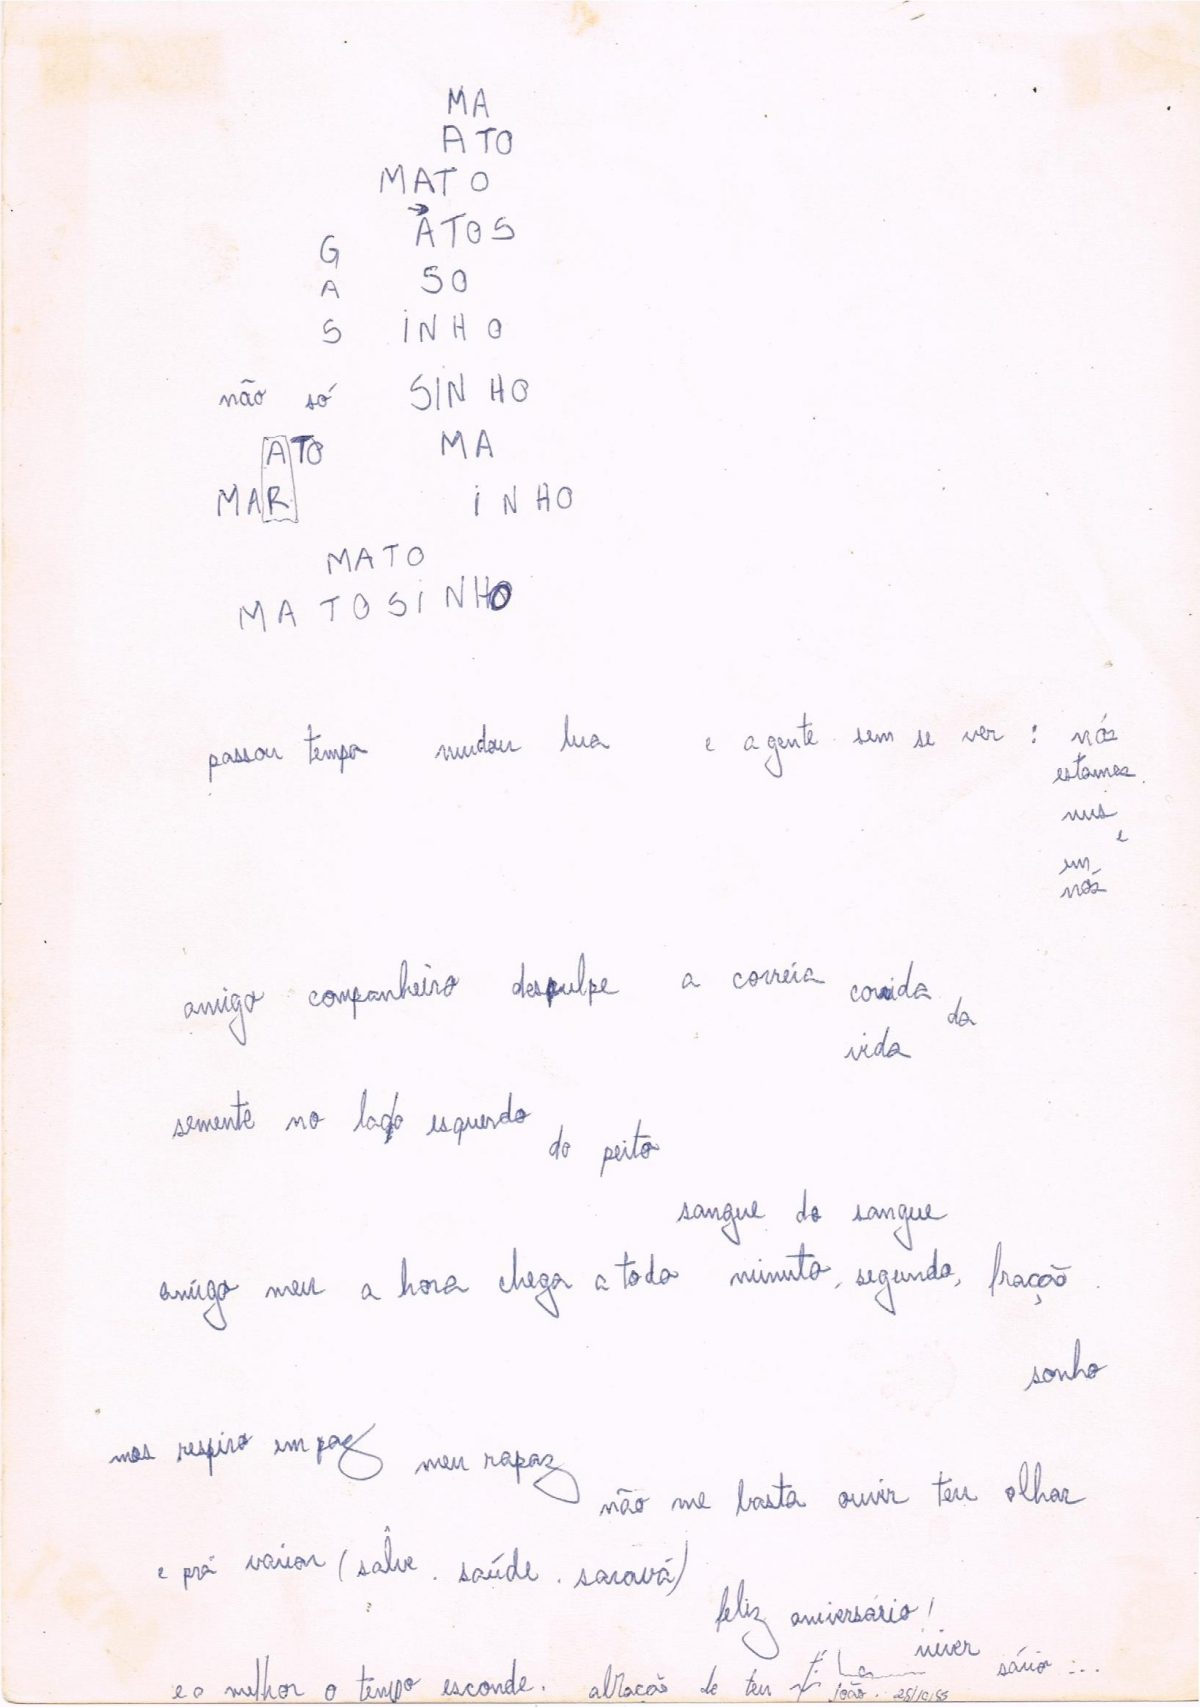 MA
ATO
MATO
ATOS
G
A SO
S iNHO
não só SiNHO
ATO MA
MAR iNHO
MATO
MATOSiNHO
passou tempo mudou lua e a gente sem se ver : nós
estamos
nus
e
em
nós
amigo companheiro desculpe a correia corrida
da
vida
semente no lado esquerdo
do peito
sangue do sangue
amigo meu a hora chega a todo minuto, segundo, fração.
sonho
mas respiro em paz meu rapaz
não me basta ouvir teu olhar
e prá variar (salve . saúde . saravá)
feliz aniversário!
niver
sário ...
e o melhor o tempo esconde. abração de teu
João. 25/10/85